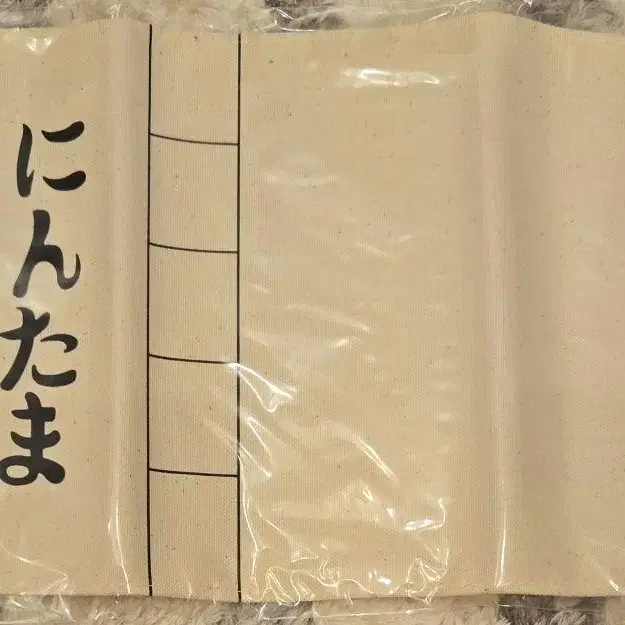 にんたま